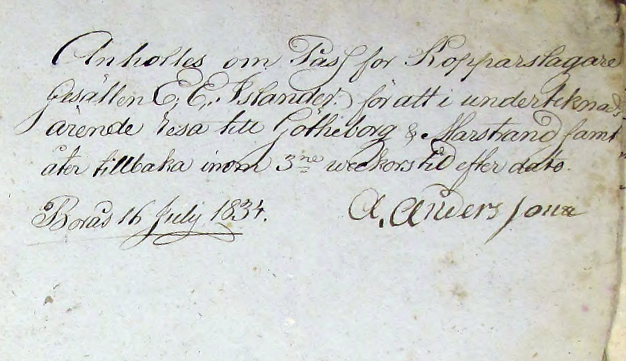 Anholles om Pass for Kopparslagare
gesällen C. E. Islander. för att i underteknads
ärende resa till Götheborg & Marstrand samt
åter tillbaka inom 3ne weckors tid efter dato.
Borås 16 July 1834. A. Anders